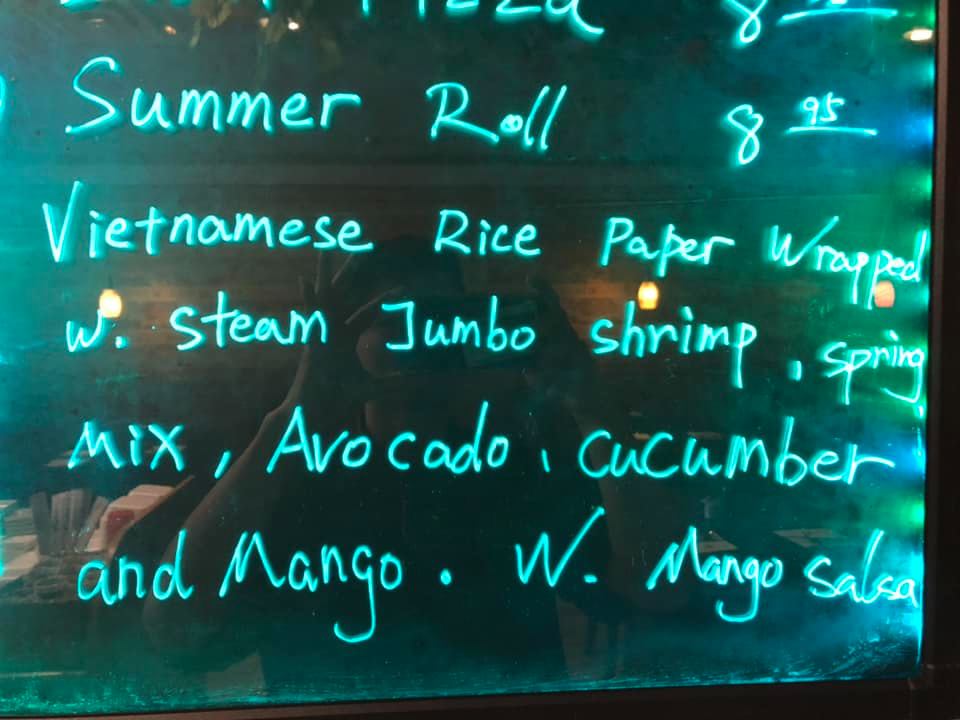 Pizza 8
Summer Roll 8 95
Vietnamese Rice Paper Wrapped
w. steam Jumbo shrimp, spring
Mix, Avocado, cucumber
and Mango. W. Mango salsa